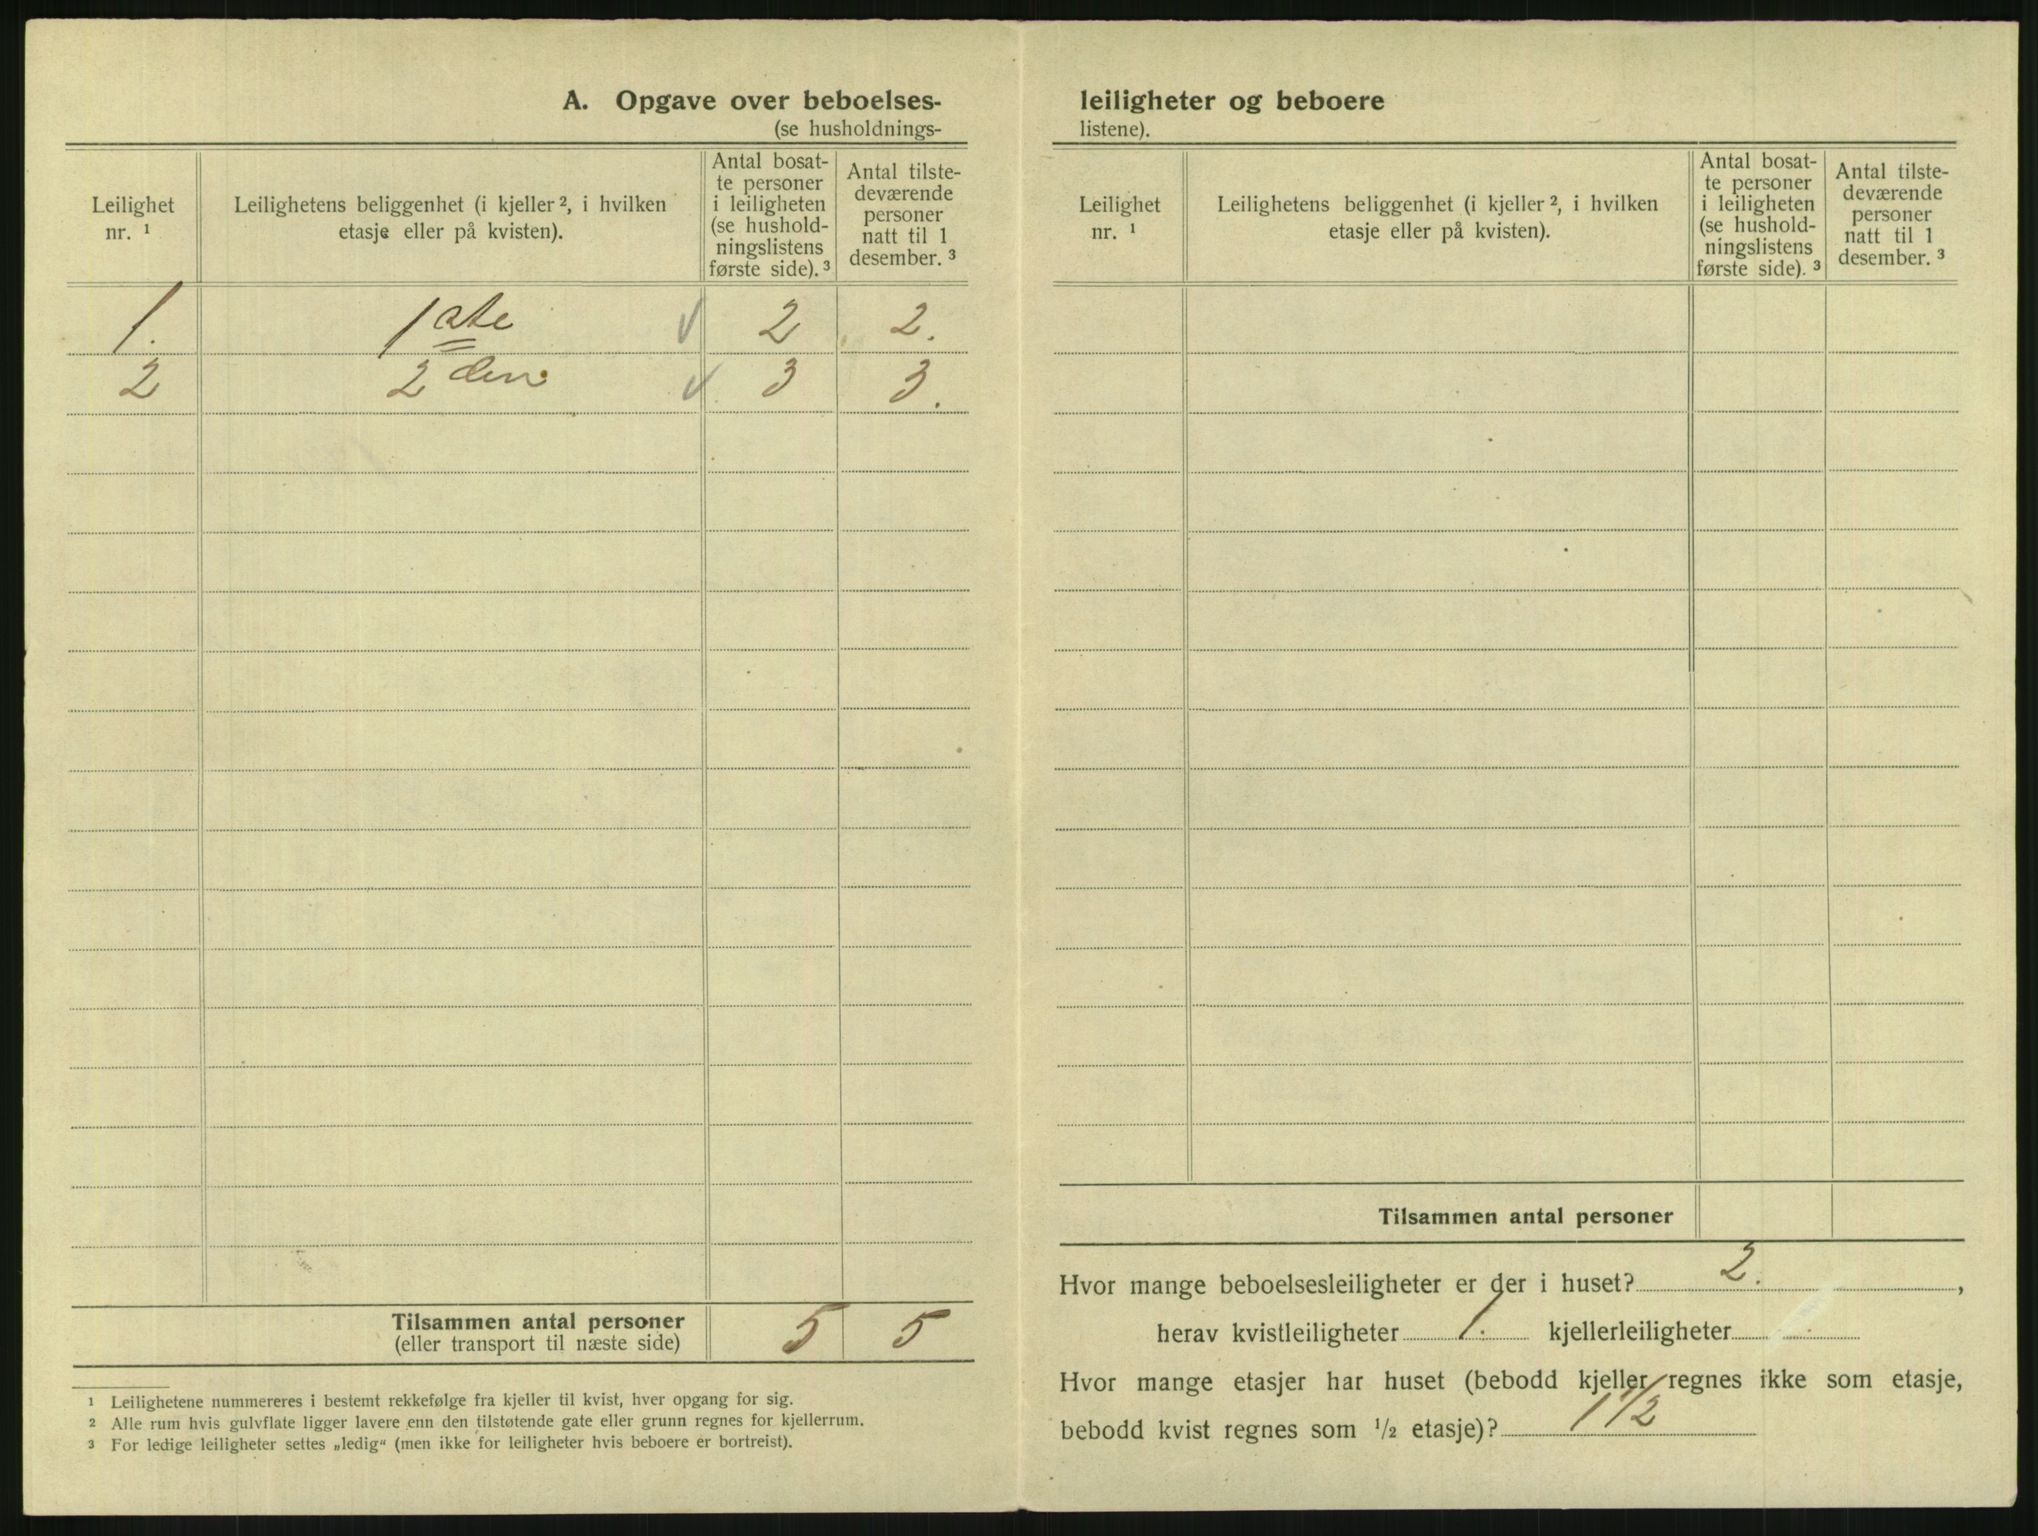 A. Opgave over beboelses-
(se husholdnings-
Leilighet
nr. ¹
Leilighetens beliggenhet (i kjeller ², i hvilken
etasje eller på kvisten).
Antal bosat-
te personer
i leiligheten
(se hushold-
ningslistens
første side). ³
Antal tilste-
deværende
personer
natt til 1
desember. ³
1. 1ste 2 2.
2 2den 3 3.
Tilsammen antal personer 5 5
(eller transport til næste side)
¹ Leilighetene nummereres i bestemt rekkefølge fra kjeller til kvist, hver opgang for sig.
² Alle rum hvis gulvflate ligger lavere enn den tilstøtende gate eller grunn regnes for kjellerrum.
³ For ledige leiligheter settes „ledig“ (men ikke for leiligheter hvis beboere er bortreist).
leiligheter og beboere
listene).
Leilighet
nr. ¹
Leilighetens beliggenhet (i kjeller ², i hvilken
etasje eller på kvisten).
Antal bosat-
te personer
i leiligheten
(se hushold-
ningslistens
første side). ³
Antal tilste-
deværende
personer
natt til 1
desember. ³
Tilsammen antal personer
Hvor mange beboelsesleiligheter er der i huset? 2. ,
herav kvistleiligheter 1. kjellerleiligheter
Hvor mange etasjer har huset (bebodd kjeller regnes ikke som etasje,
bebodd kvist regnes som ½ etasje)? 1 1/2